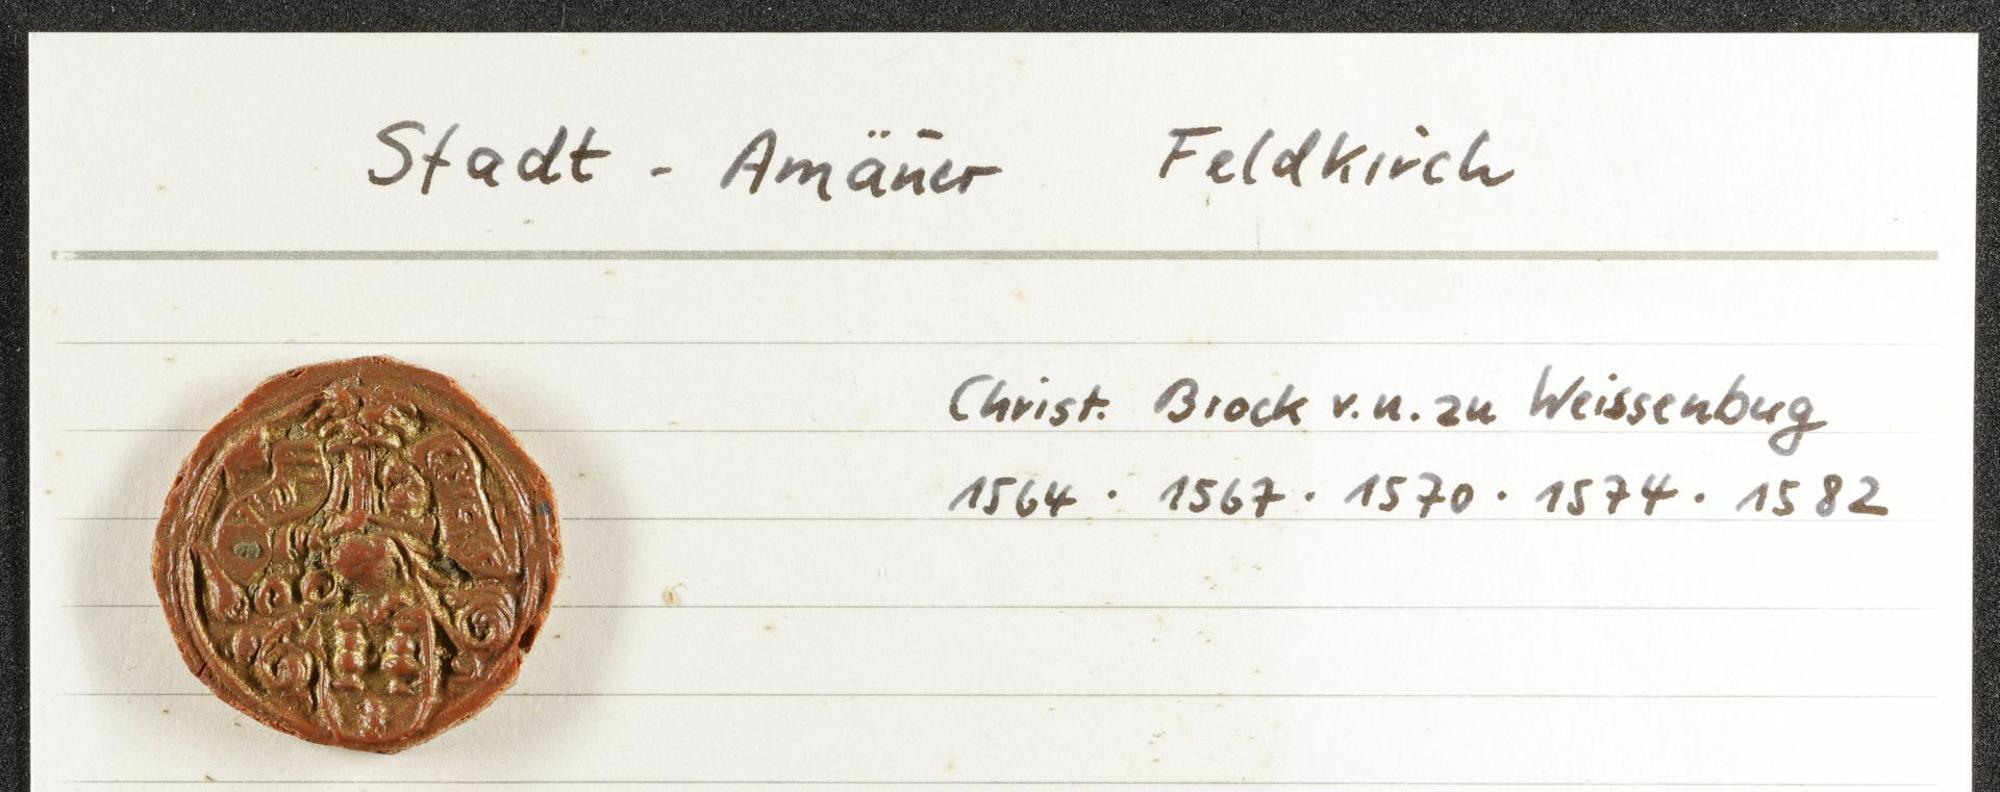 Stadt - Amän̄er Feldkirch
Christ. Brock v. u. zu Weissenburg
1564 · 1567 · 1570 · 1574 · 1582